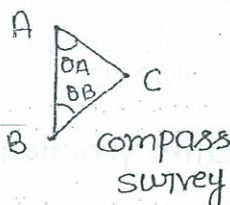 A
θA
C
θB
B
compass
survey